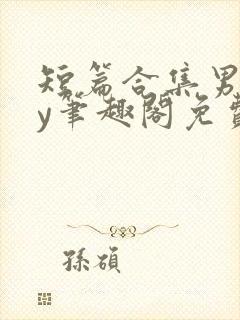 短篇合集男
y笔趣阁免费
孫碩